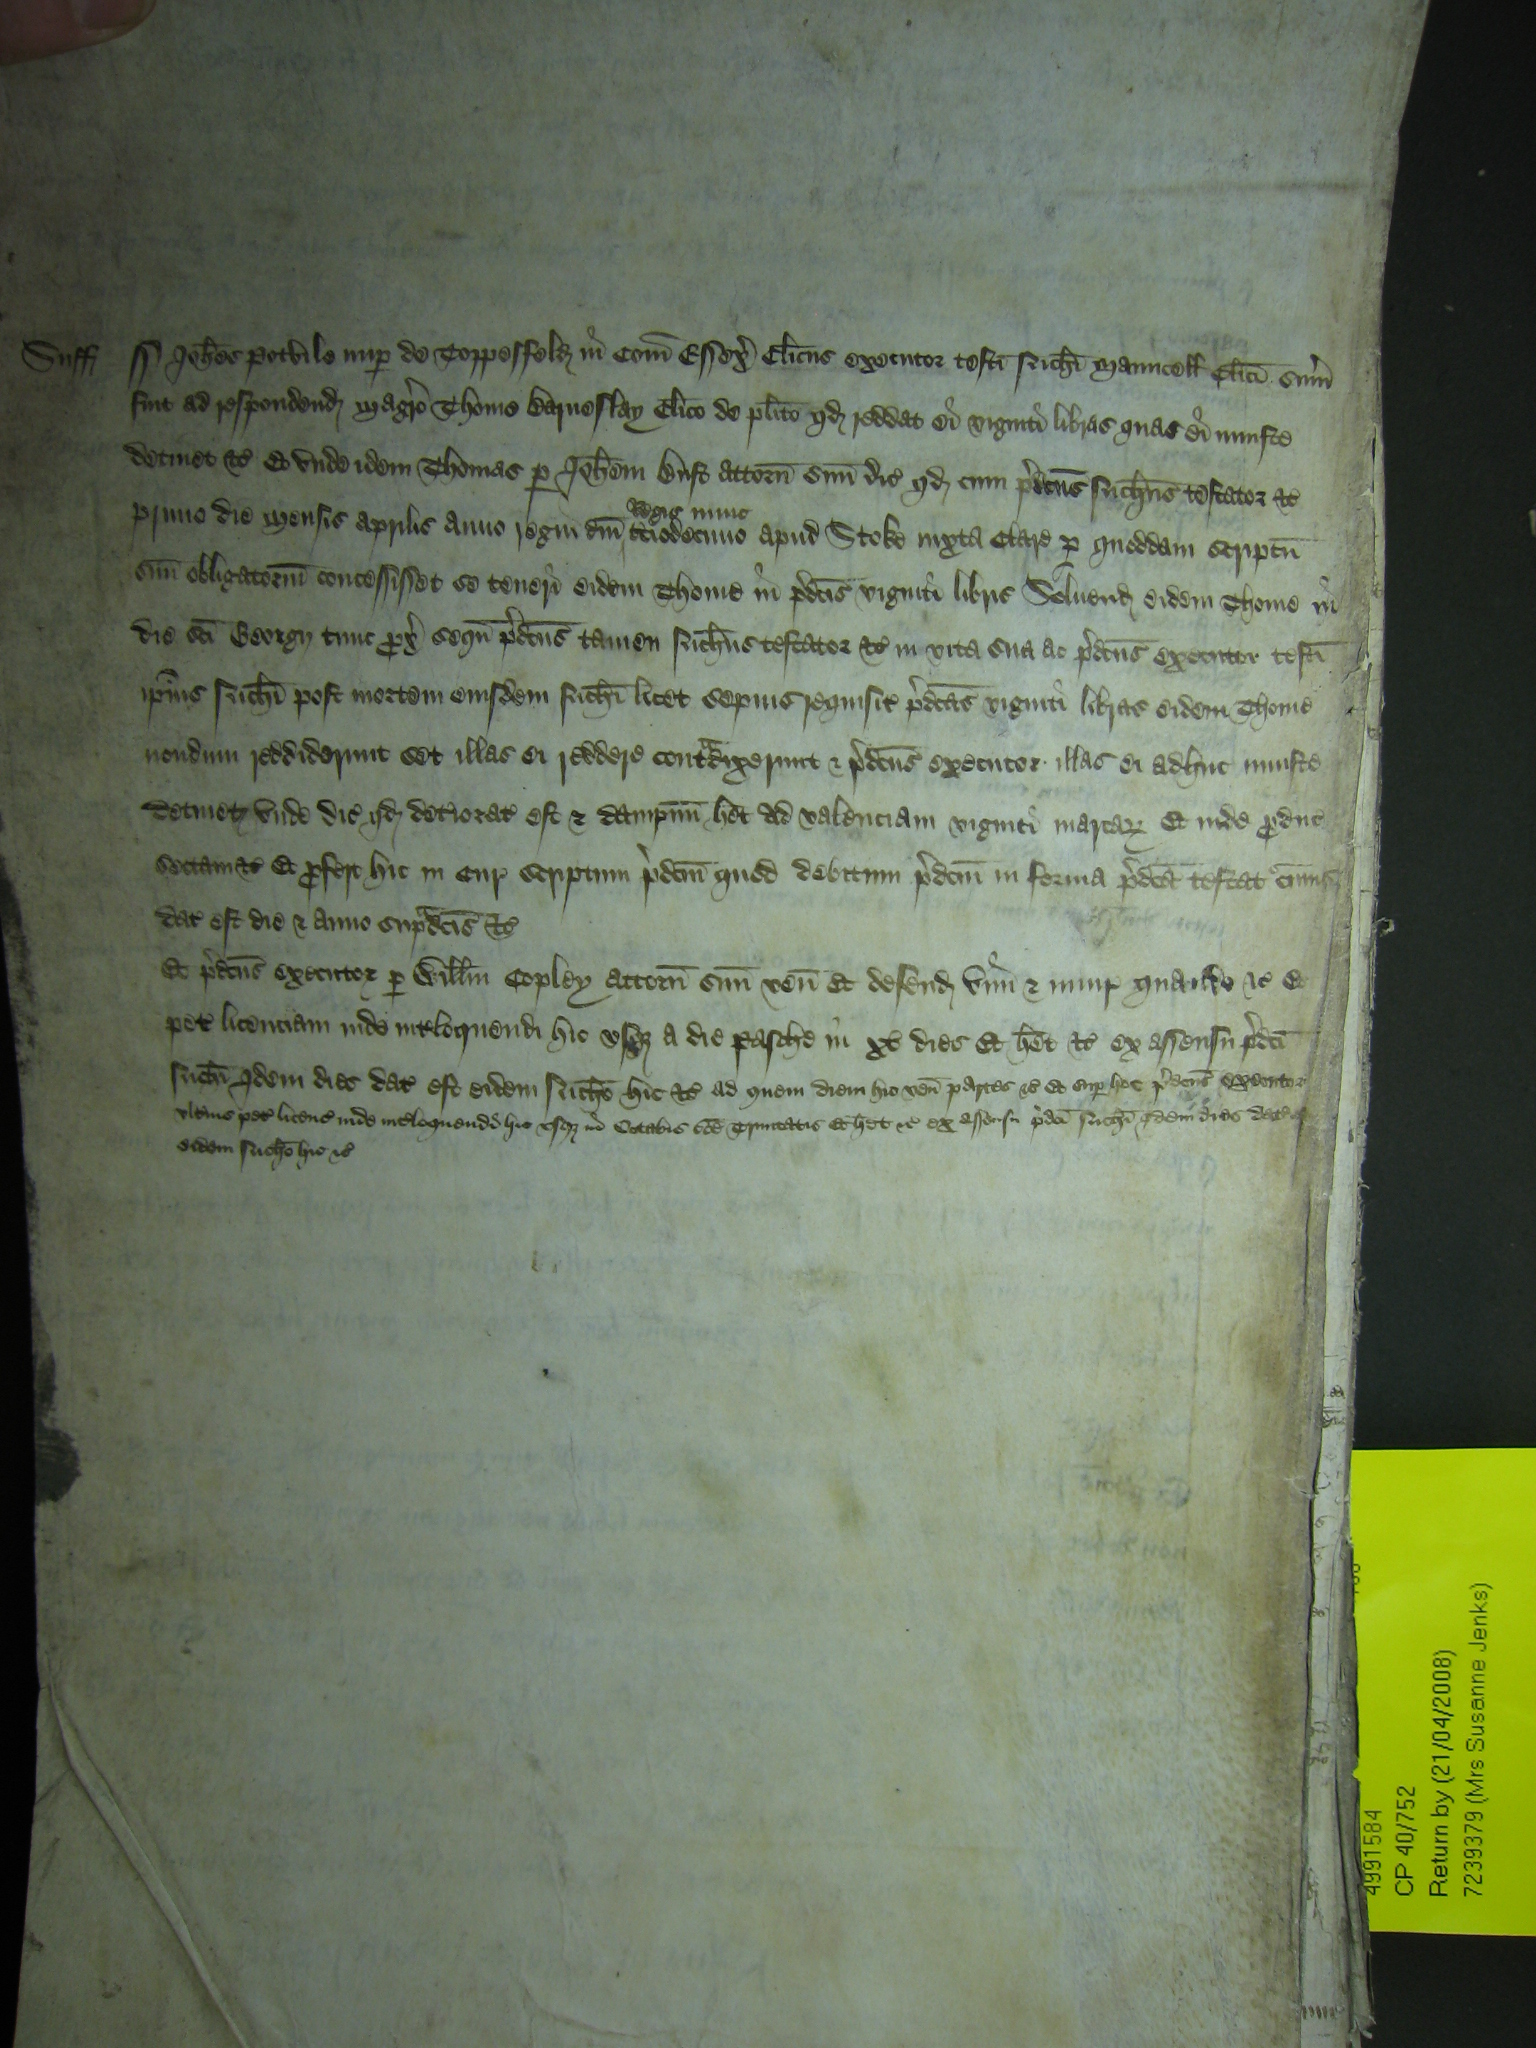 Suff ss Joħes Potbile nup de Toppesfeld in Com Essex Clicus executor testi Ricħi Mauncell Clici sum
fuit ad respondend Magro Thome Barneslay Clico de plito qd reddat ei viginti libras quas ei iniuste
detinet &c Et unde idem Thomas p Joħem Bust attorn suu dic qd cum pdcus Ricħus testator &c
primo die mensis Aprilis anno regni dni Regis nunc tciodecimo apud Stoke iuxta Clare p quoddam scriptu
suu obligatoriu concessisset se teneri eidem Thome in pdcis viginti libris Soluend eidem Thome in
die sci Georgij tunc px sequ pdcus tamen Ricħus testator &c in vita sua ac pdcus executor testi
ipius Ricħi post mortem eiusdem Ricħi licet sepius requisit pdcas viginti libras eidem Thome
nondum reddiderunt set illas ei reddere contradixerunt & pdcus executor illas ei adhuc iniuste
detinet unde dic qd deteriorat est & dampnu het ad valenciam viginti marcar Et inde pduc
sectam &c Et pfert hic in Cur scriptum pdcm quod debitum pdcm in forma pdca testat cuius
dat est die & anno supradcis &c
Et pdcus executor p Willm Copley attorn suu ven Et defend vim & iniur quando &c Et
pet licenciam inde intloquendi hic usq a die Pasche in xv dies Et het &c ex assensu pdci
Ricħi Idem dies dat est eidem Ricħo hic &c ad quem diem hic ven partes &c Et sup hoc pdcus executor
ultius pet licenc inde intloquendi hic usq in Octabis sce Trinitatis Et het &c ex assensu pdci Ricħi Idem dies dat est
eidem Ricħo hic &c
4991584
CP 40/752
Return by (21/04/2008)
7239379 (Mrs Susanne Jenks)